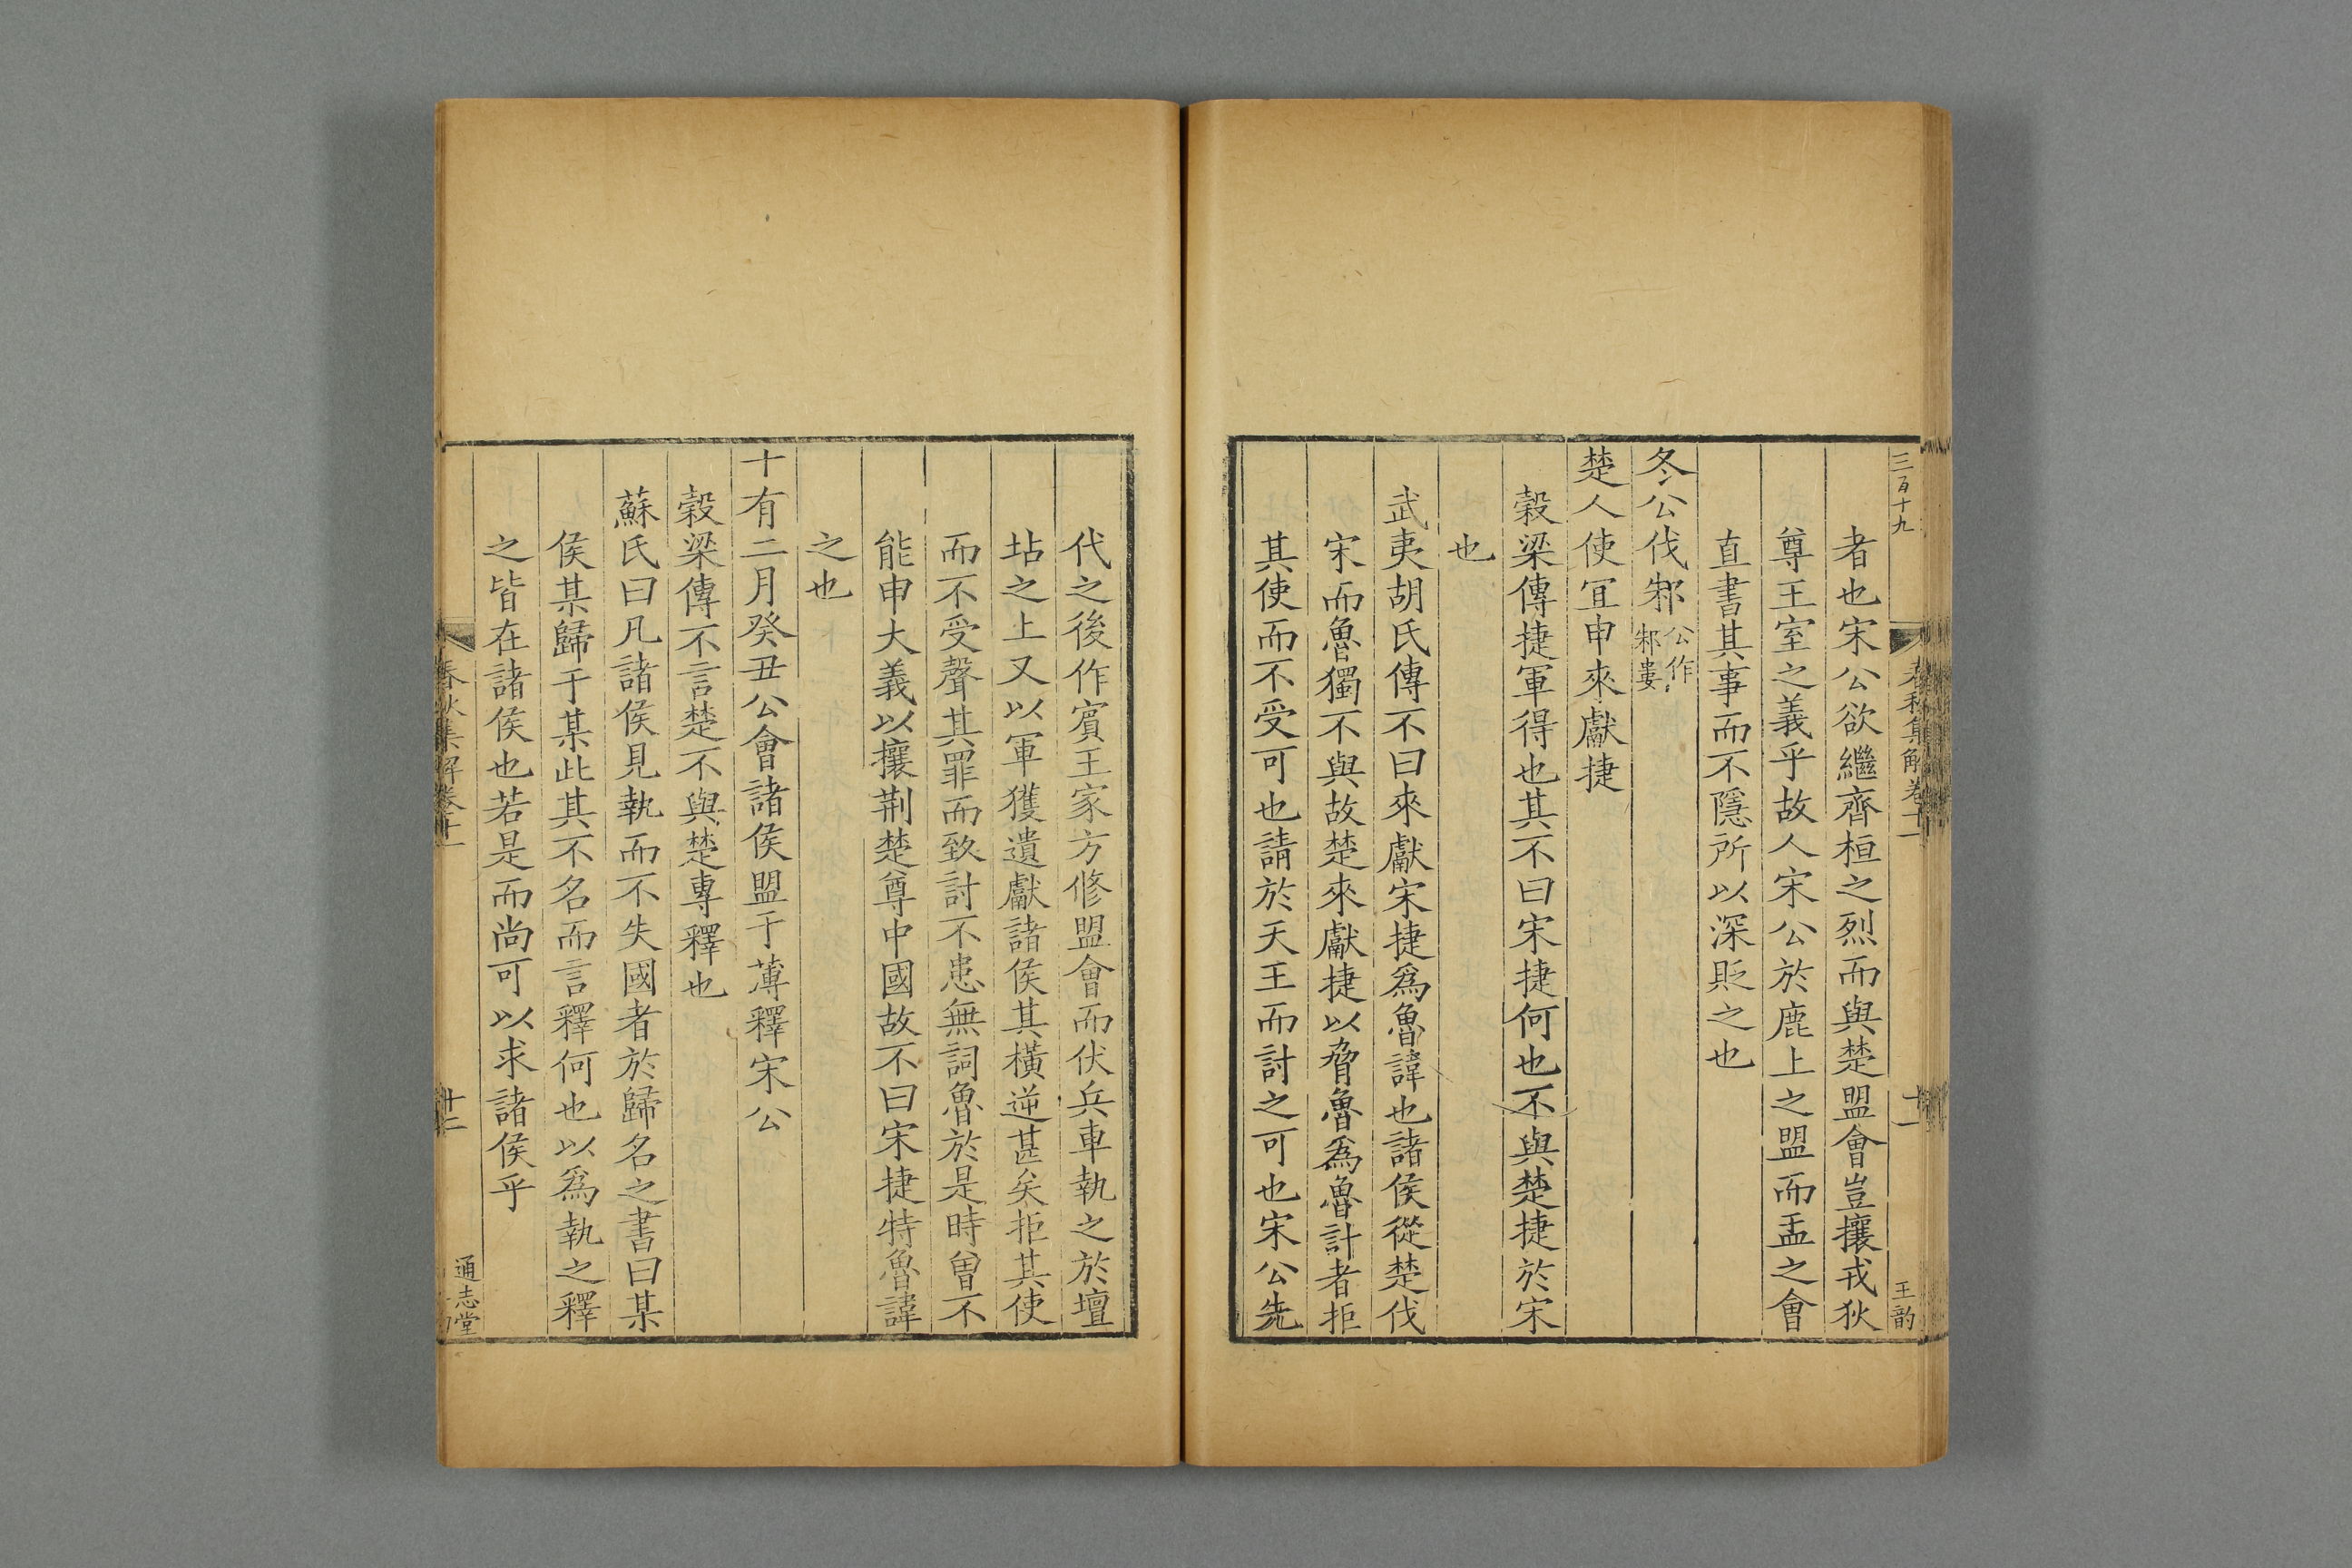 三百十九
春秋集解卷十一
十一
王韵
者也宋公欲繼齊桓之烈而與楚盟會豈攘戎狄
尊王室之義乎故人宋公於鹿上之盟而盂之會
直書其事而不隱所以深貶之也
冬公伐邾公作邾婁
楚人使宜申來獻捷
穀梁傳捷軍得也其不曰宋捷何也不與楚捷於宋
也
武夷胡氏傳不曰來獻宋捷爲魯諱也諸侯從楚伐
宋而魯獨不與故楚來獻捷以脅魯爲魯計者拒
其使而不受可也請於天王而討之可也宋公先
代之後作賓王家方修盟會而伏兵車執之於壇
坫之上又以軍獲遺獻諸侯其橫逆甚矣拒其使
而不受聲其罪而致討不患無詞魯於是時曾不
能申大義以攘荆楚尊中國故不曰宋捷特魯諱
之也
十有二月癸丑公會諸侯盟于薄釋宋公
穀梁傳不言楚不與楚專釋也
蘇氏曰凡諸侯見執而不失國者於歸名之書曰某
侯某歸于某此其不名而言釋何也以爲執之釋
之皆在諸侯也若是而尚可以求諸侯乎
春秋集解卷十一
十二
通志堂